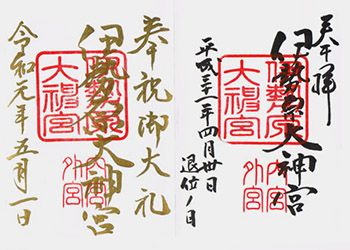 奉拝
伊勢原大神宮
平成三十一年四月卅日
退位ノ日
伊勢原
大神宮
内宮
外宮
奉祝御大礼
伊勢原大神宮
令和元年五月一日
伊勢原
大神宮
内宮
外宮